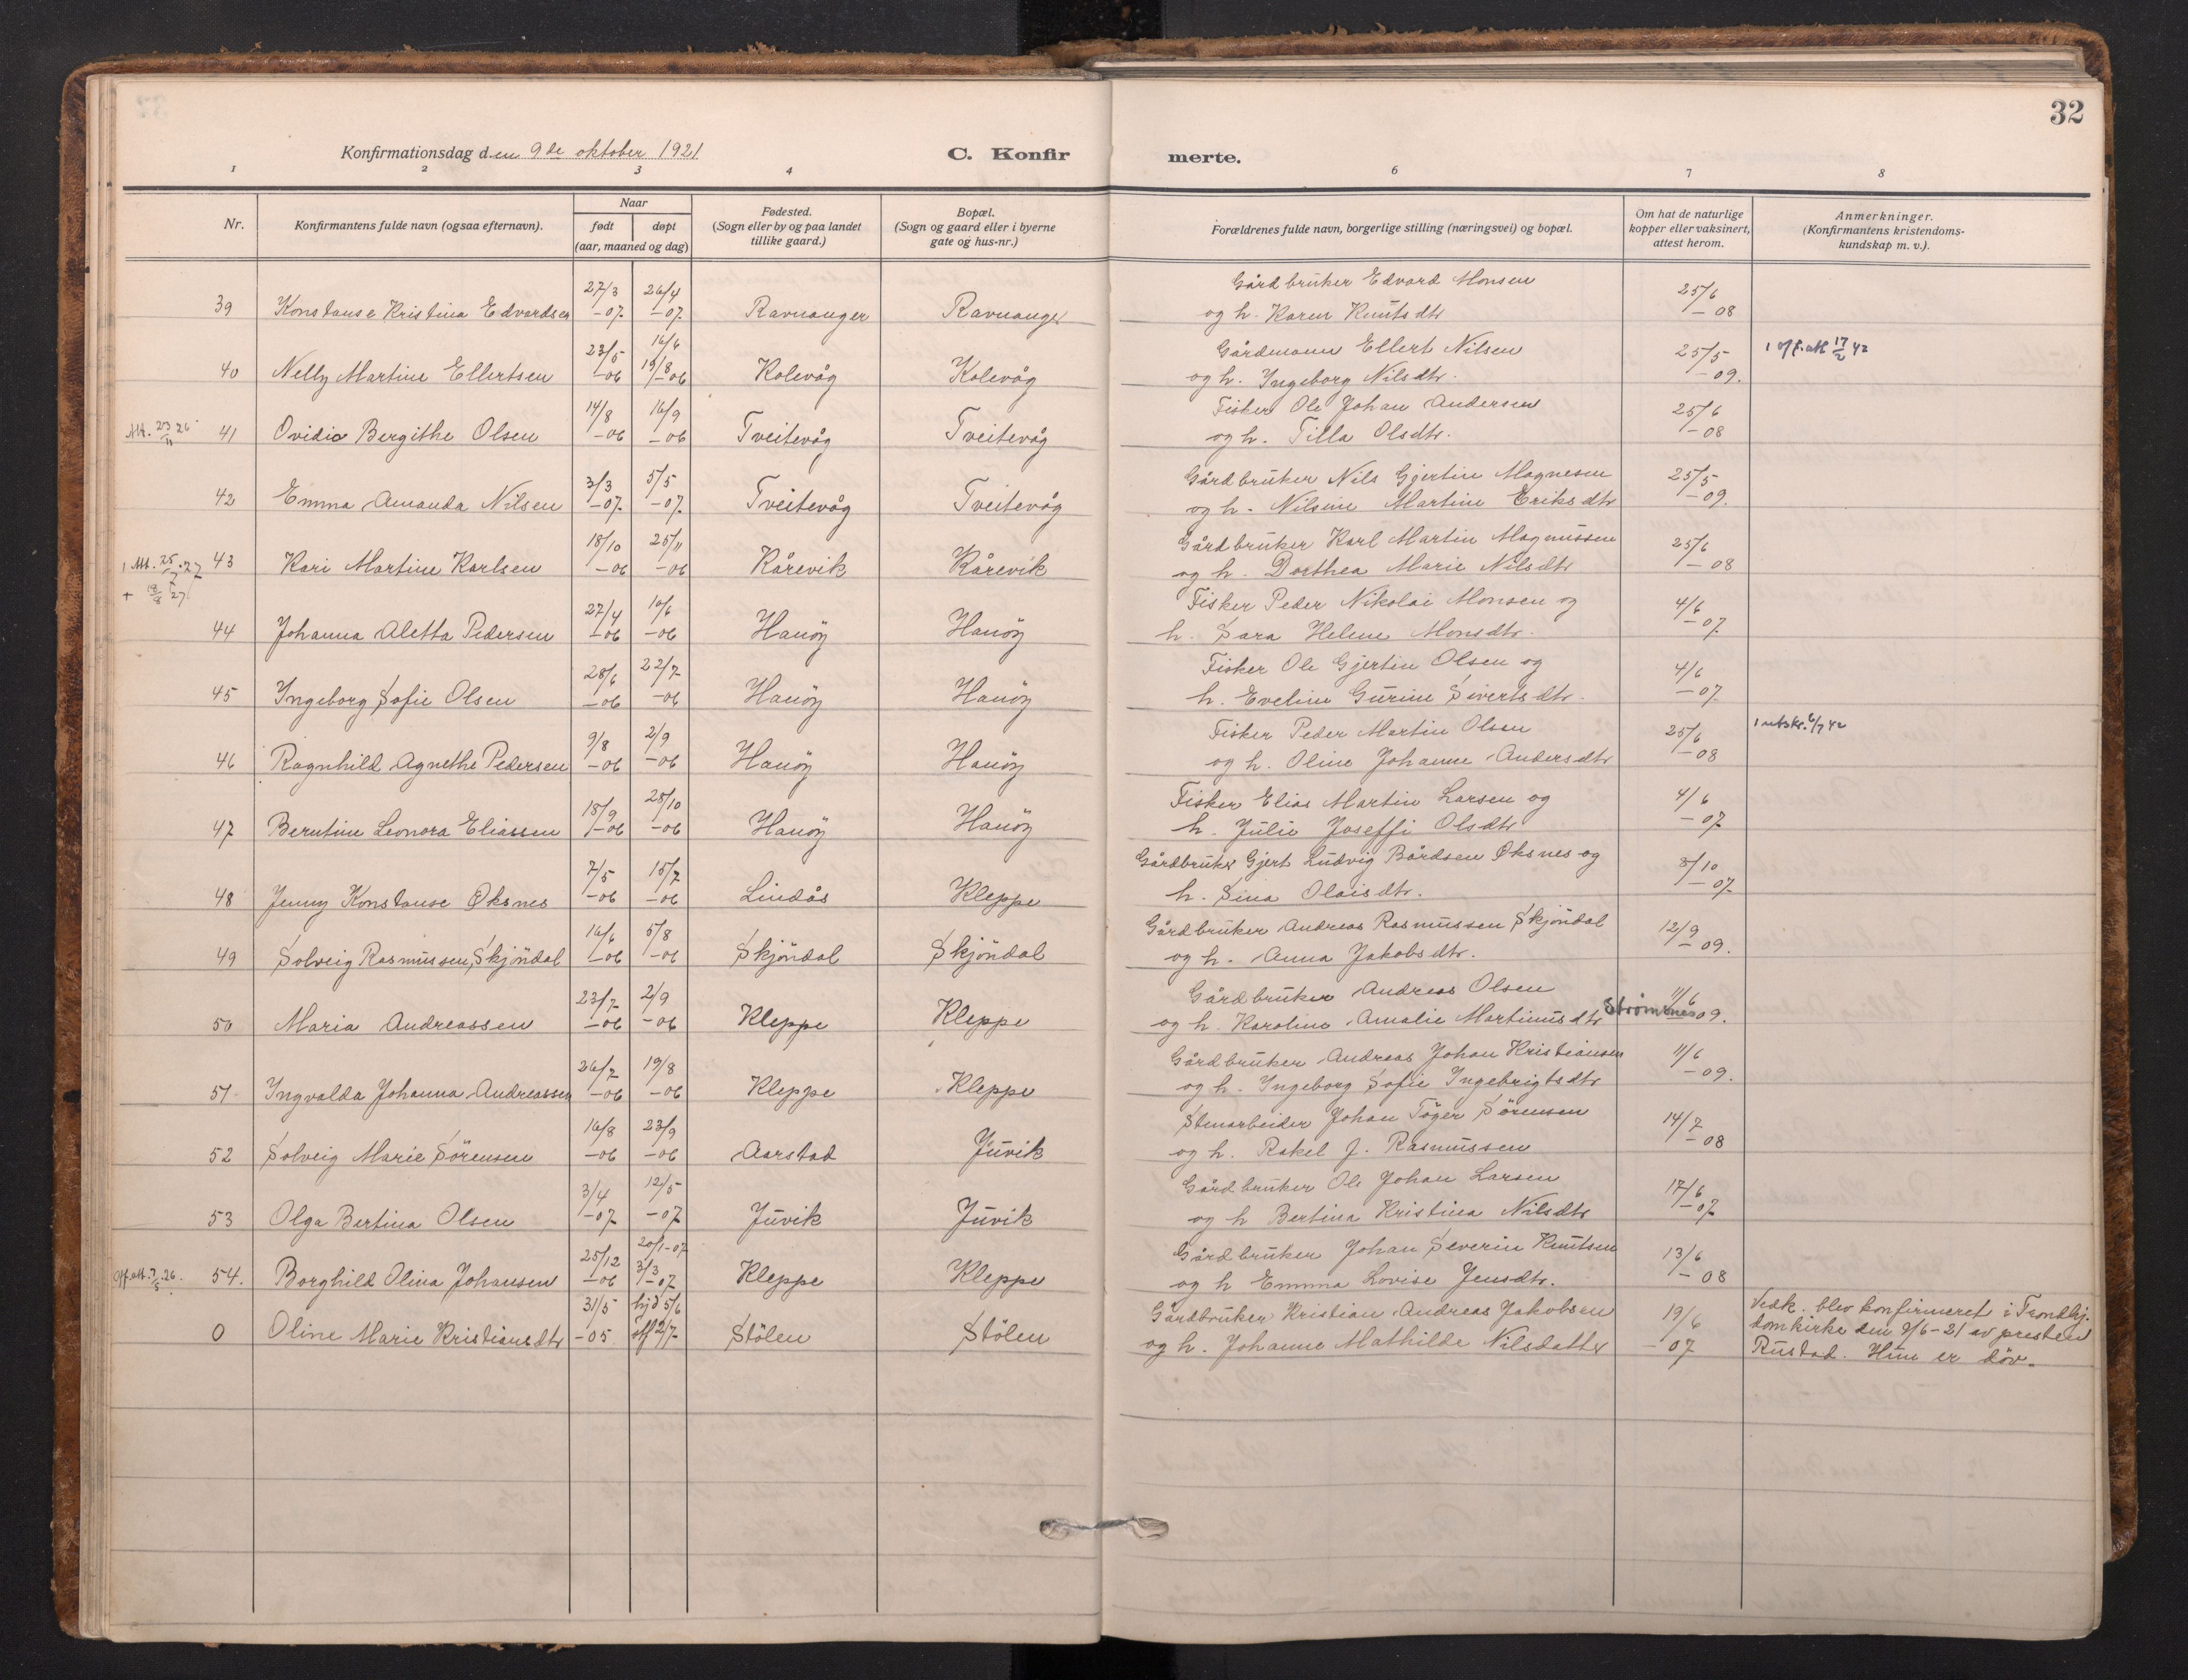 32
Konfirmationsdag den 9de oktober 1921
C. Konfir merte.
1 2 3 4 6 7 8
Nr.
Konfirmantens fulde navn (ogsaa efternavn).
Naar
født døpt
(aar, maaned og dag)
Fødested.
(Sogn eller by og paa landet
tillike gaard.)
Bopæl.
(Sogn og gaard eller i byerne
gate og hus-nr.)
Forældrenes fulde navn, borgerlige stilling (næringsvei) og bopæl.
Om hat de naturlige
kopper eller vaksinert,
attest herom.
Anmerkninger.
(Konfirmantens kristendoms-
kundskap m. v.).
27/3 26/4 Gårdbruker Edvard Monsen 25/6
39 Konstanse Kristina Edvardsen -07. -07. Ravnanger Ravnanger og h. Karen Knutsdtr -08
23/5 16/6 Gårdmann Ellert Nilsen 25/5 1 off. att 17/2 42
40 Nelly Martine Ellertsen -06 19/8-06 Kolevåg Kolevåg og h. Ingeborg Nilsdtr. -09.
14/8 16/9 Fisker Ole Johan Andersen 25/6
Att. 23/11 26 41 Ovidia Bergithe Olsen -06 -06 Tveitevåg Tveitevåg og h. Tilla Olsdtr. -08
3/3 5/5 Gårdbruker Nils Gjertin Magnesen 25/5
42 Emma Amanda Nilsen -07. -07. Tveitevåg Tveitevåg og h. Nilsine Martine Eriksdtr -09.
18/10 25/11 Gårdbruker Karl Martin Magnussen 25/6
1 Att. 25/7 27 43 Kari Martine Karlsen -06 -06 Kårevik Kårevik og h. Dorthea Marie Nilsdtr -08
27/4 10/6 Fisker Peder Nikolai Monsen og 4/6
44 Johanna Aletta Pedersen -06 -06 Hanöy Hanöy h. Sara Helene Monsdtr. -07.
28/6 22/7 Fisker Ole Gjertin Olsen og 4/6
45 Ingeborg Sofie Olsen -06 -06 Hanöy Hanöy h. Eveline Gurine Sivertsdtr. -07.
9/8 2/9 Fisker Peder Martin Olsen 25/6 1 utskr. 6/7 42
46 Ragnhild Agnethe Pedersen -06 -06 Hanöy Hanöy og h. Oline Johanne Andersdtr -08
18/9 28/10 Fisker Elias Martin Larsen og 4/6
47 Berntine Leonora Eliassen -06 -06 Hanöy Hanöy h. Julie Joseffi Olsdtr -07.
7/5 15/7 Gårdbruker Gjert Ludvig Bårdsen Øksnes og 8/10
48 Jenny Konstanse Øksnes -06 -06 Lindås Kleppe h. Sina Olaisdtr. -07.
16/6 5/8 Gårdbruker Andreas Rasmussen Skjöndal 12/9
49 Solveig Rasmussen, Skjöndal -06 -06 Skjöndal Skjöndal og h. Anna Jakobsdtr. -09.
23/7 2/9 Gårdbruker Andreas Olsen 11/6
50 Maria Andreassen -06 -06 Kleppe Kleppe og h. Karoline Amalie Martinusdtr Strømsnes 09.
26/7 19/8 Gårdbruker Andreas Johan Kristiansen 11/6
51 Ingvalda Johanna Andreassen -06 -06 Kleppe Kleppe og h. Ingeborg Sofie Ingebrigtsdtr -09.
16/8 23/9 Stenarbeider Johan Töger Sörensen 14/7
52 Solveig Marie Sörensen -06 -06 Aarstad Juvik og h. Rakel J. Rasmussen -08
3/4 12/5 Gårdbruker Ole Johan Larsen 17/6
53 Olga Bertina Olsen -07. -07. Juvik Juvik og h Bertina Kristina Nilsdtr -07.
25/12 20/1-07 Gårdbruker Johan Severin Knutsen 13/6
Off. att. 7/5 26. 54. Borghild Olina Johansen -06 3/3-07 Kleppe Kleppe og h Emma Lovise Jensdtr. -08
31/5 hjd 5/6 Gårdbruker Kristian Andreas Jakobsen 19/6 Vedk. blev konfirmeret i Trondhj.
0 Oline Marie Kristiansdtr -05. off 2/7 Stölen Stölen og h. Johanne Mathilde Nilsdatter -07 domkirke den 9/6-21 av presten
Rustad. Hun er döv.